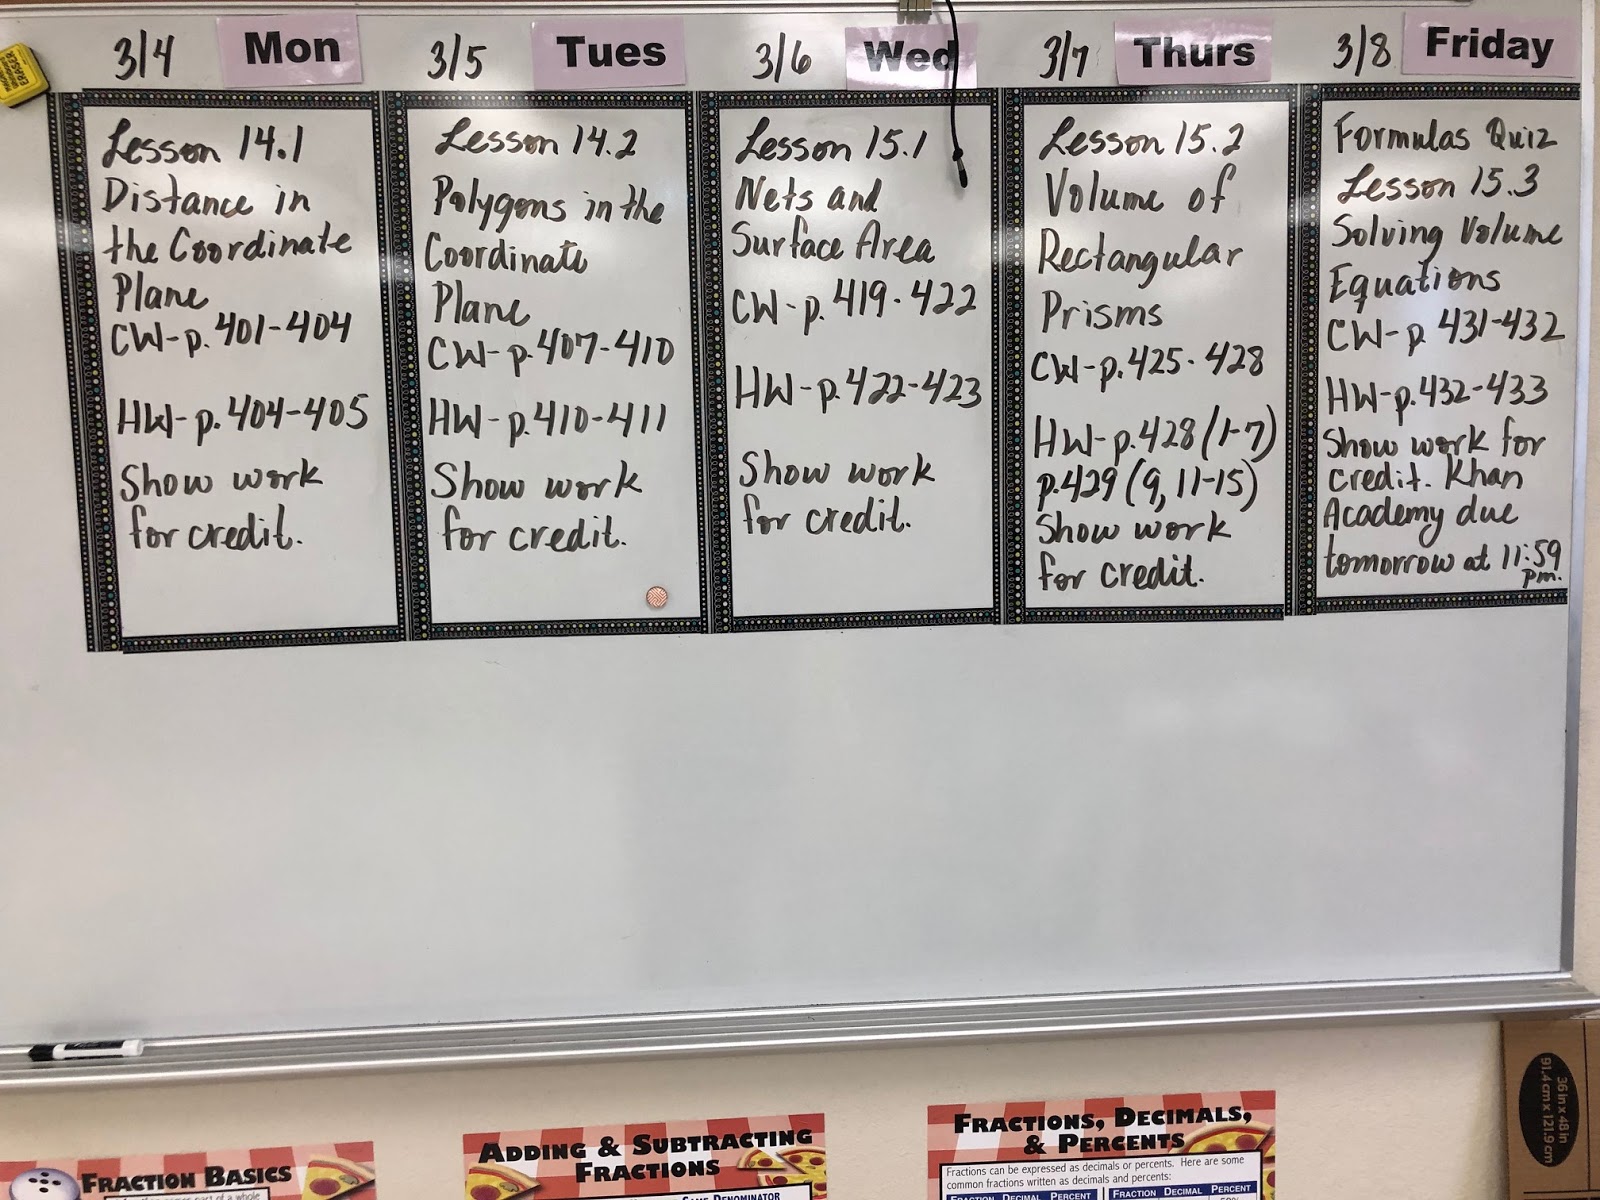 3/4 Mon
Lesson 14.1
Distance in
the Coordinate
Plane
CW-p. 401-404
HW-p. 404-405
Show work
for credit.
3/5 Tues
Lesson 14.2
Polygons in the
Coordinate
Plane
CW-p. 407-410
HW-p. 410-411
Show work
for credit.
3/6 Wed
Lesson 15.1
Nets and
Surface Area
CW-p. 419-422
HW-p. 422-423
Show work
for credit.
3/7 Thurs
Lesson 15.2
Volume of
Rectangular
Prisms
CW-p. 425-428
HW-p. 428 (1-7)
p. 429 (9, 11-15)
Show work
for credit.
3/8 Friday
Formulas Quiz
Lesson 15.3
Solving Volume
Equations
CW-p. 431-432
HW-p. 432-433
Show work for
credit. Khan
Academy due
tomorrow at 11:59
pm.
ERASER
FRACTION BASICS
part of a whole
ADDING & SUBTRACTING
FRACTIONS
SAME DENOMINATOR
FRACTIONS, DECIMALS,
& PERCENTS
Fractions can be expressed as decimals or percents. Here are some
common fractions written as decimals and percents:
FRACTION DECIMAL PERCENT FRACTION DECIMAL PERCENT
50%
36 in x 48 in
91.4 cm x 121.9 cm